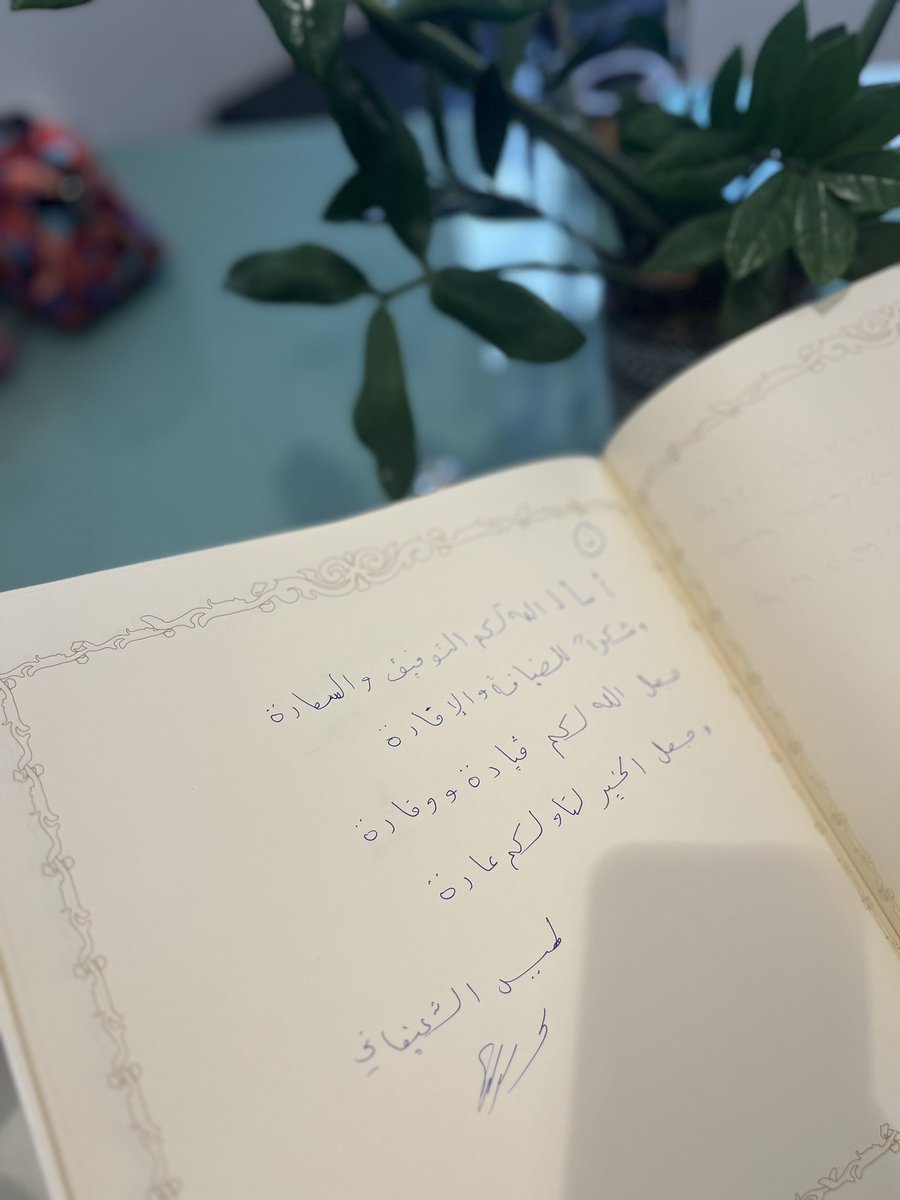 أسأل الله لكم التوفيق والسعادة
وشكراً للضيافة والإفادة
جعل الله لكم قيادة ووفادة
وجعل الخير لنا ولكم عادة